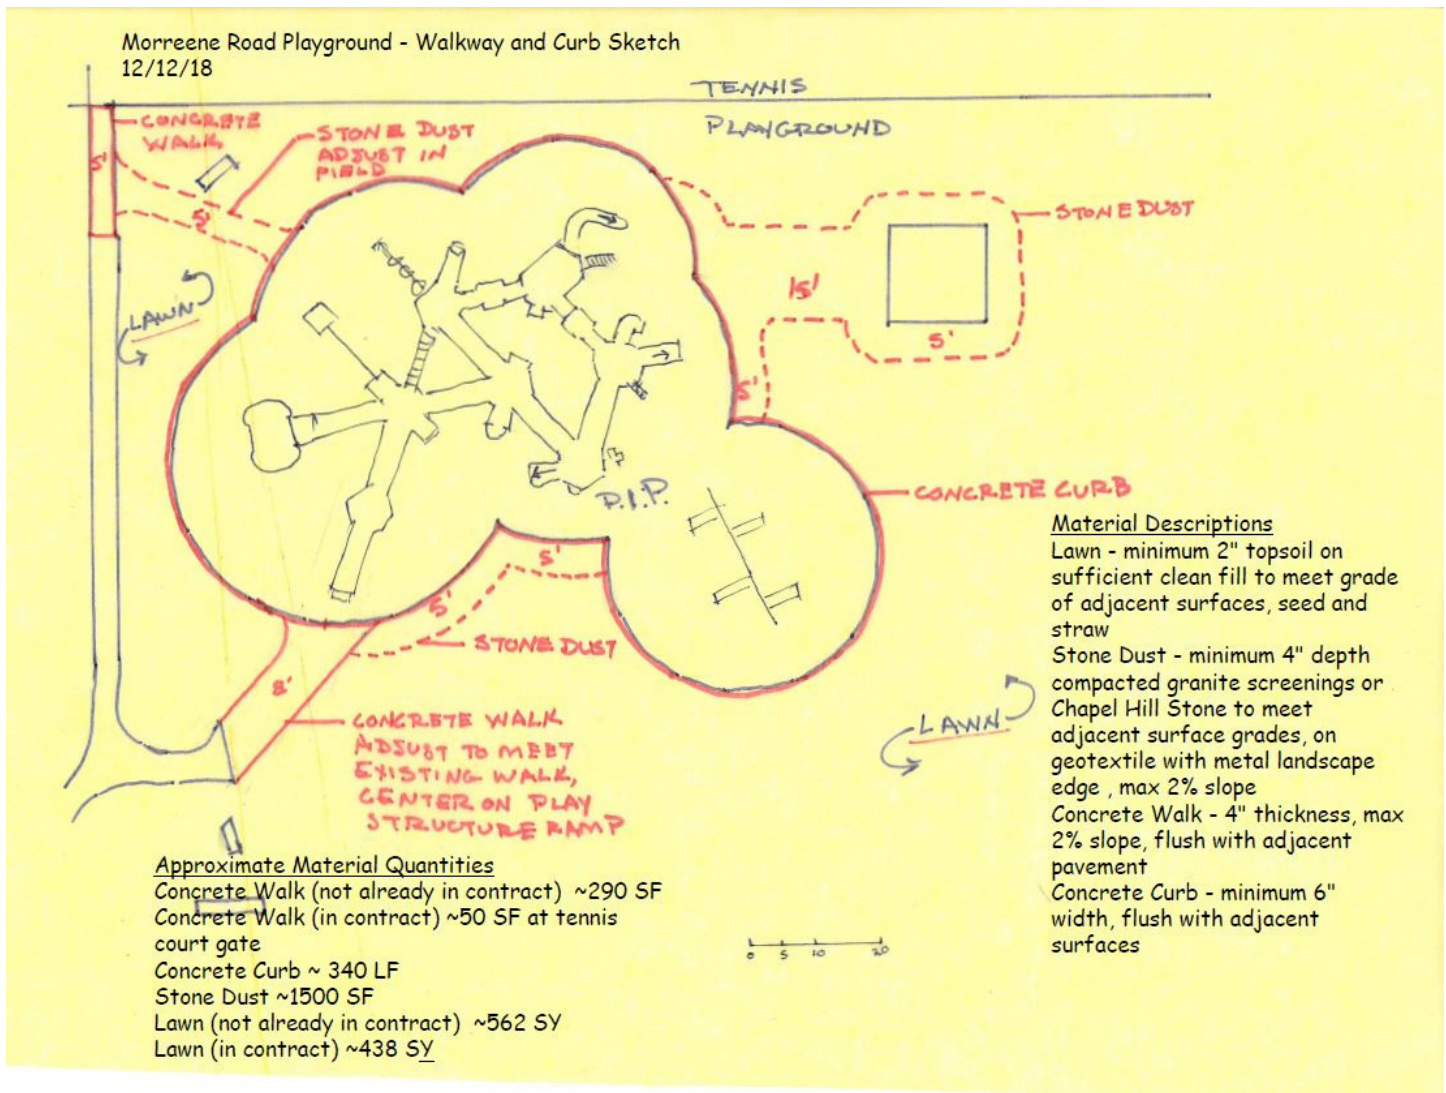 Morreene Road Playground - Walkway and Curb Sketch
12/12/18
TENNIS
PLAYGROUND
CONCRETE
WALK
5'
STONE DUST
ADJUST IN
FIELD
5'
STONE DUST
15'
5'
5'
LAWN
P.I.P.
CONCRETE CURB
5'
5'
STONE DUST
8'
CONCRETE WALK
ADJUST TO MEET
EXISTING WALK,
CENTER ON PLAY
STRUCTURE RAMP
LAWN
Material Descriptions
Lawn - minimum 2" topsoil on
sufficient clean fill to meet grade
of adjacent surfaces, seed and
straw
Stone Dust - minimum 4" depth
compacted granite screenings or
Chapel Hill Stone to meet
adjacent surface grades, on
geotextile with metal landscape
edge , max 2% slope
Concrete Walk - 4" thickness, max
2% slope, flush with adjacent
pavement
Concrete Curb - minimum 6"
width, flush with adjacent
surfaces
Approximate Material Quantities
Concrete Walk (not already in contract) ~290 SF
Concrete Walk (in contract) ~50 SF at tennis
court gate
Concrete Curb ~ 340 LF
Stone Dust ~1500 SF
Lawn (not already in contract) ~562 SY
Lawn (in contract) ~438 SY
0 5 10 20